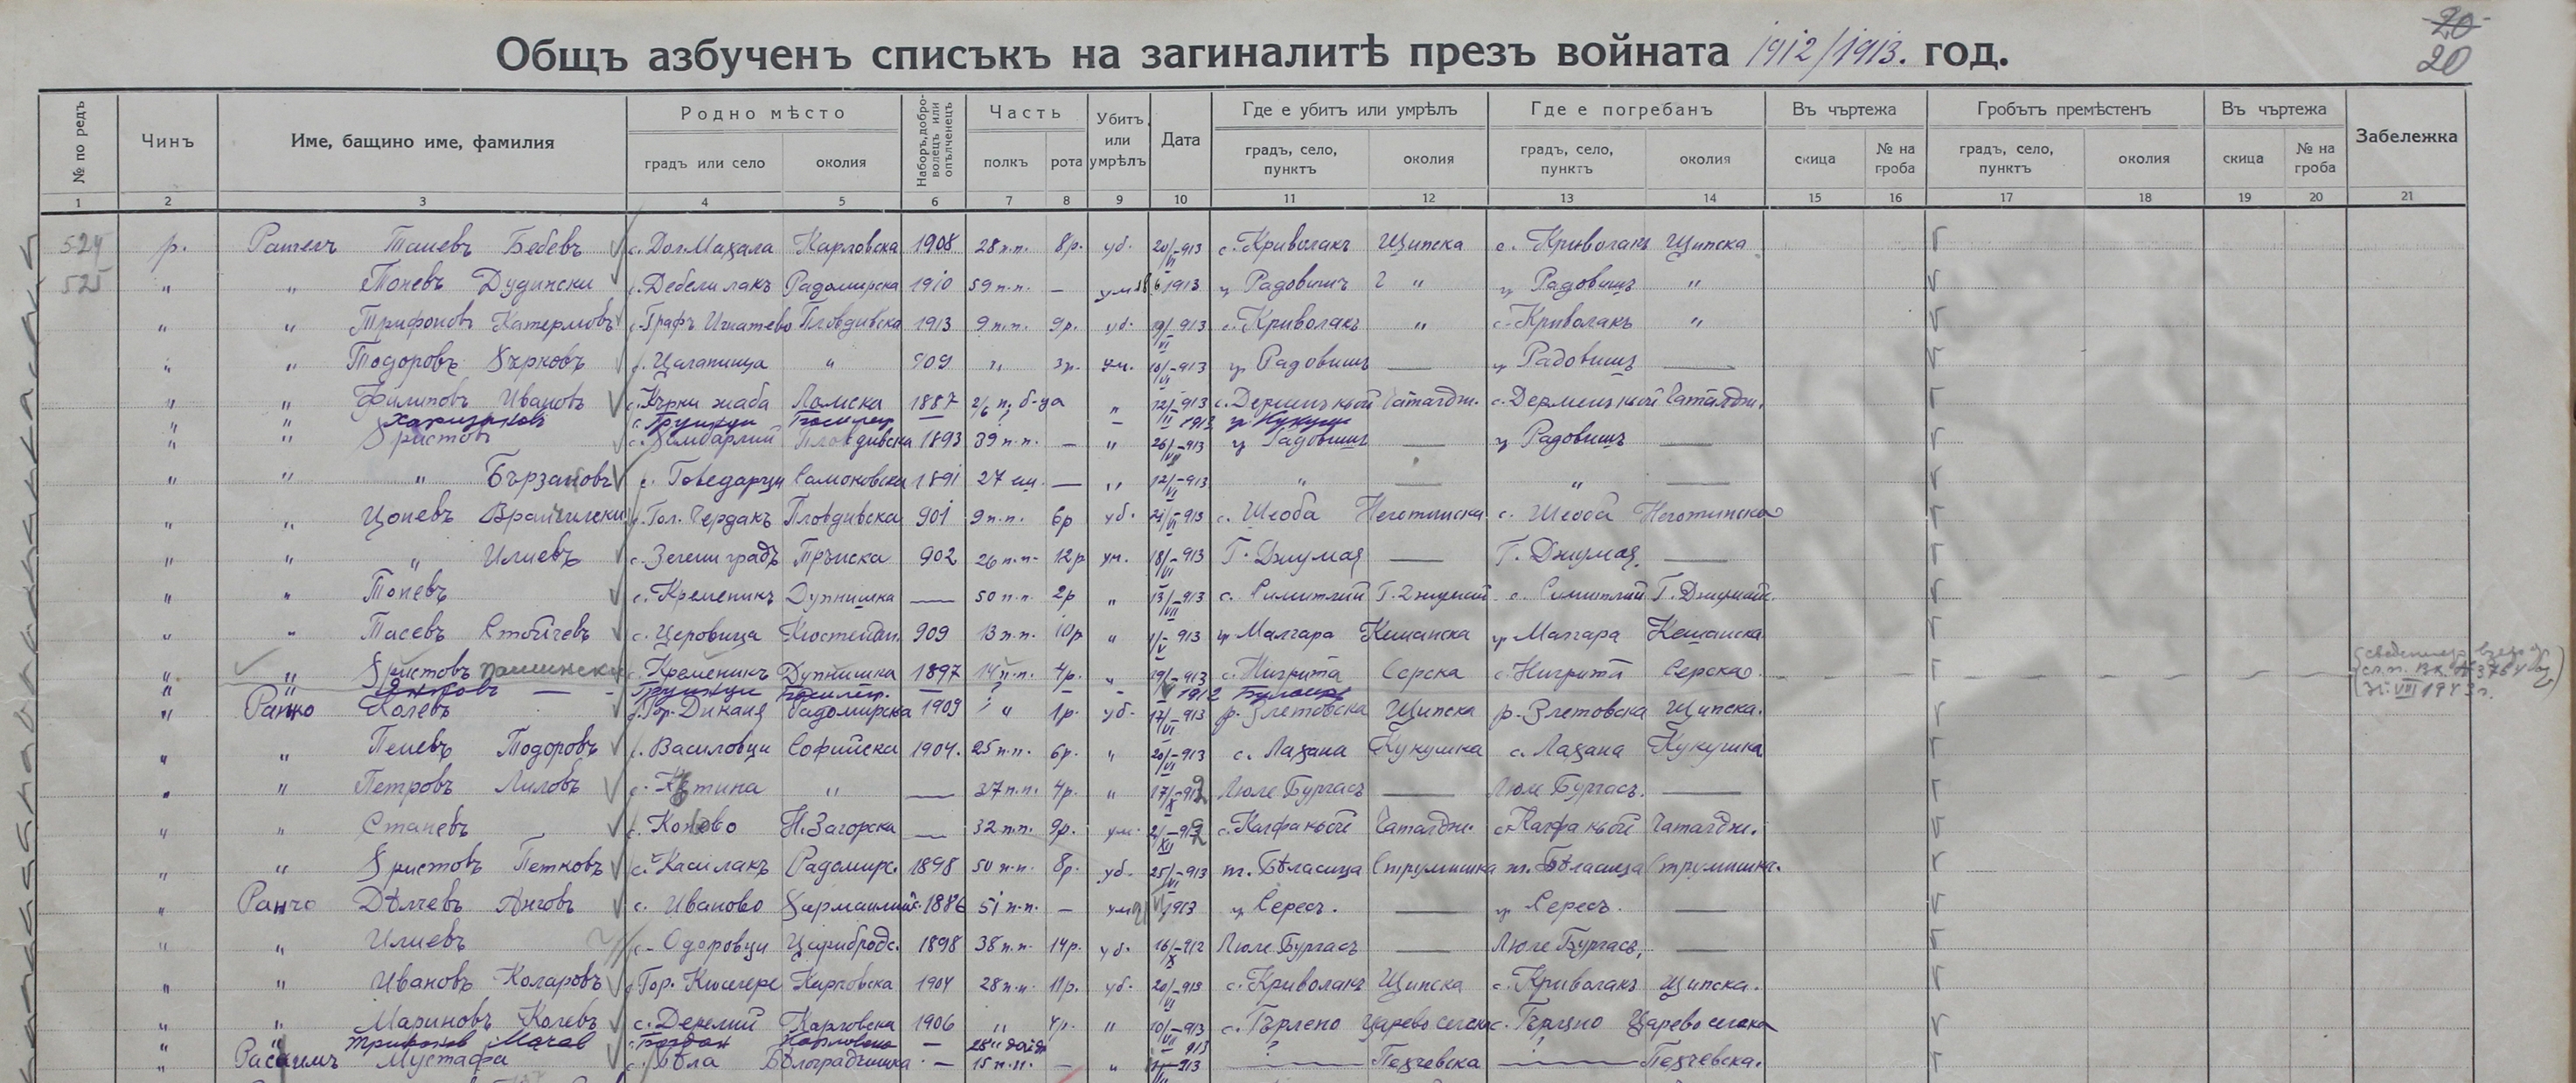 20
20
Общъ азбученъ списъкъ на загиналитѣ презъ войната 1912/1913. год.
№ по редъ Чинъ Име, бащино име, фамилия Родно мѣсто Наборъ, добро-волецъ или опълченецъ Часть Убитъ или умрѣлъ Дата Где е убитъ или умрѣлъ Где е погребанъ Въ чъртежа Гробътъ премѣстенъ Въ чъртежа Забележка
градъ или село околия полкъ рота градъ, село, пунктъ околия градъ, село, пунктъ околия скица № на гроба градъ, село, пунктъ околия скица № на гроба
1 2 3 4 5 6 7 8 9 10 11 12 13 14 15 16 17 18 19 20 21
524 р. Бебевъ с. Дол. Махала Карловска 1908 28 п.п. 8р. уб. 20/VI-913 с. Криволакъ Щипска с. Криволакъ Щипска
525 " " Тоневъ Дудински с. Дебели лакъ Радомирска 1910 59 п.п. — ум. 1913 гр Радовишъ " гр Радовишъ "
" " Трифоновъ с. Графъ Игнатево Пловдивска 1913 9 п.п. 9р. уб. 19/VI-913 с. Криволакъ " с. Криволакъ "
" " Тодоровъ с. Цалапица " 909 " 3р. ум. 10/VI-913 гр Радовишъ — гр Радовишъ —
" " Филиповъ Ивановъ с. Кърни жаба Ломска 1887 2/6 п. б-ца " 12/III-913 с. Дерменъ кьой Чаталдж. с. Дерменъ кьой Чаталдж.
" " Христовъ Пловдивска 1893 39 п.п. — " 26/VI-913 гр Радовишъ — гр Радовишъ —
" " " Бързановъ с. Говедарци Самоковска 1891 27 — " 12/VI-913 " — " —
" " Цоневъ с. Гол. Чердакъ Пловдивска 901 9 п.п. 6р уб. 21/VI-913 с. Шеоба Неготинска с. Шеоба Неготинска
" " " Илиевъ с. Зелени градъ Трънска 902 26 п.п. 12р ум. 18/VI-913 Г. Джумая — Г. Джумая. —
" " Тоневъ с. Кременикъ Дупнишка — 50 п.п. 2р " 13/VII-913 с. Симитлий Г. Джумай. с. Симитлий Г. Джумай.
" " Тасевъ Стойчевъ с. Церовица Кюстендил. 909 13 п.п. 10р " 1/V-913 гр Малгара Кешанска гр Малгара Кешанска
" " Христовъ с. Кременикъ Дупнишка 1897 14 п.п. 4р. " 19/V-913 с. Нигрита Серска с. Нигрита Серска
1912 Булаир
" Ранко Колевъ с. Гор. Диканя Радомирска 1909 " 1р. уб. 17/VI-913 р. Злетовска Щипска р. Злетовска Щипска.
" " Пеневъ Тодоровъ с. Василовци Софийска 1904. 25 п.п. 6р. " 20/VI-913 с. Лахана Кукушка с. Лахана Кукушка
" " Петровъ Лиловъ с. Кътина " — 37 п.п. 4р. " 17/X-912 Люле Бургасъ — Люле Бургасъ. —
" " Станевъ с. Коньово Н. Загорска — 32 п.п. 9р. ум. 21/XII-912 с. Калфакьой Чаталдж. с. Калфакьой Чаталдж.
" " Христовъ Петковъ с. Касилакъ Радомирс. 1898 50 п.п. 8р. уб. 25/VI-913 пл. Бѣласица Струмишка пл. Бѣласица Струмишка.
" Ранчо Дѣлчевъ Анговъ с. Иваново Харманлийс. 1886 51 п.п. — ум. 1913 гр Сересъ. — гр Сересъ. —
" " Илиевъ с. Одоровци Царибродс. 1898 38 п.п. 14р. уб. 16/X-912 Люле Бургасъ — Люле Бургасъ, —
" " Ивановъ Коларовъ с. Гор. Кюселере Карловска 1904 28 п.п. 11р. уб. 20/VI-913 с. Криволакъ Щипска с. Криволакъ Щипска.
" " Мариновъ Колевъ с. Делелий Карловска 1906 " 4р. " 10/VII-913 с. Гърлено Царево селска с. Гърлено Царево селска
" Трифонов Мачев с. Богдан Карловско — 28 913 ?
" Расимъ Мустафа с. Бѣла Бѣлоградчишка — 15 п.п. — " 913 — Пехчевска — Пехчевска.